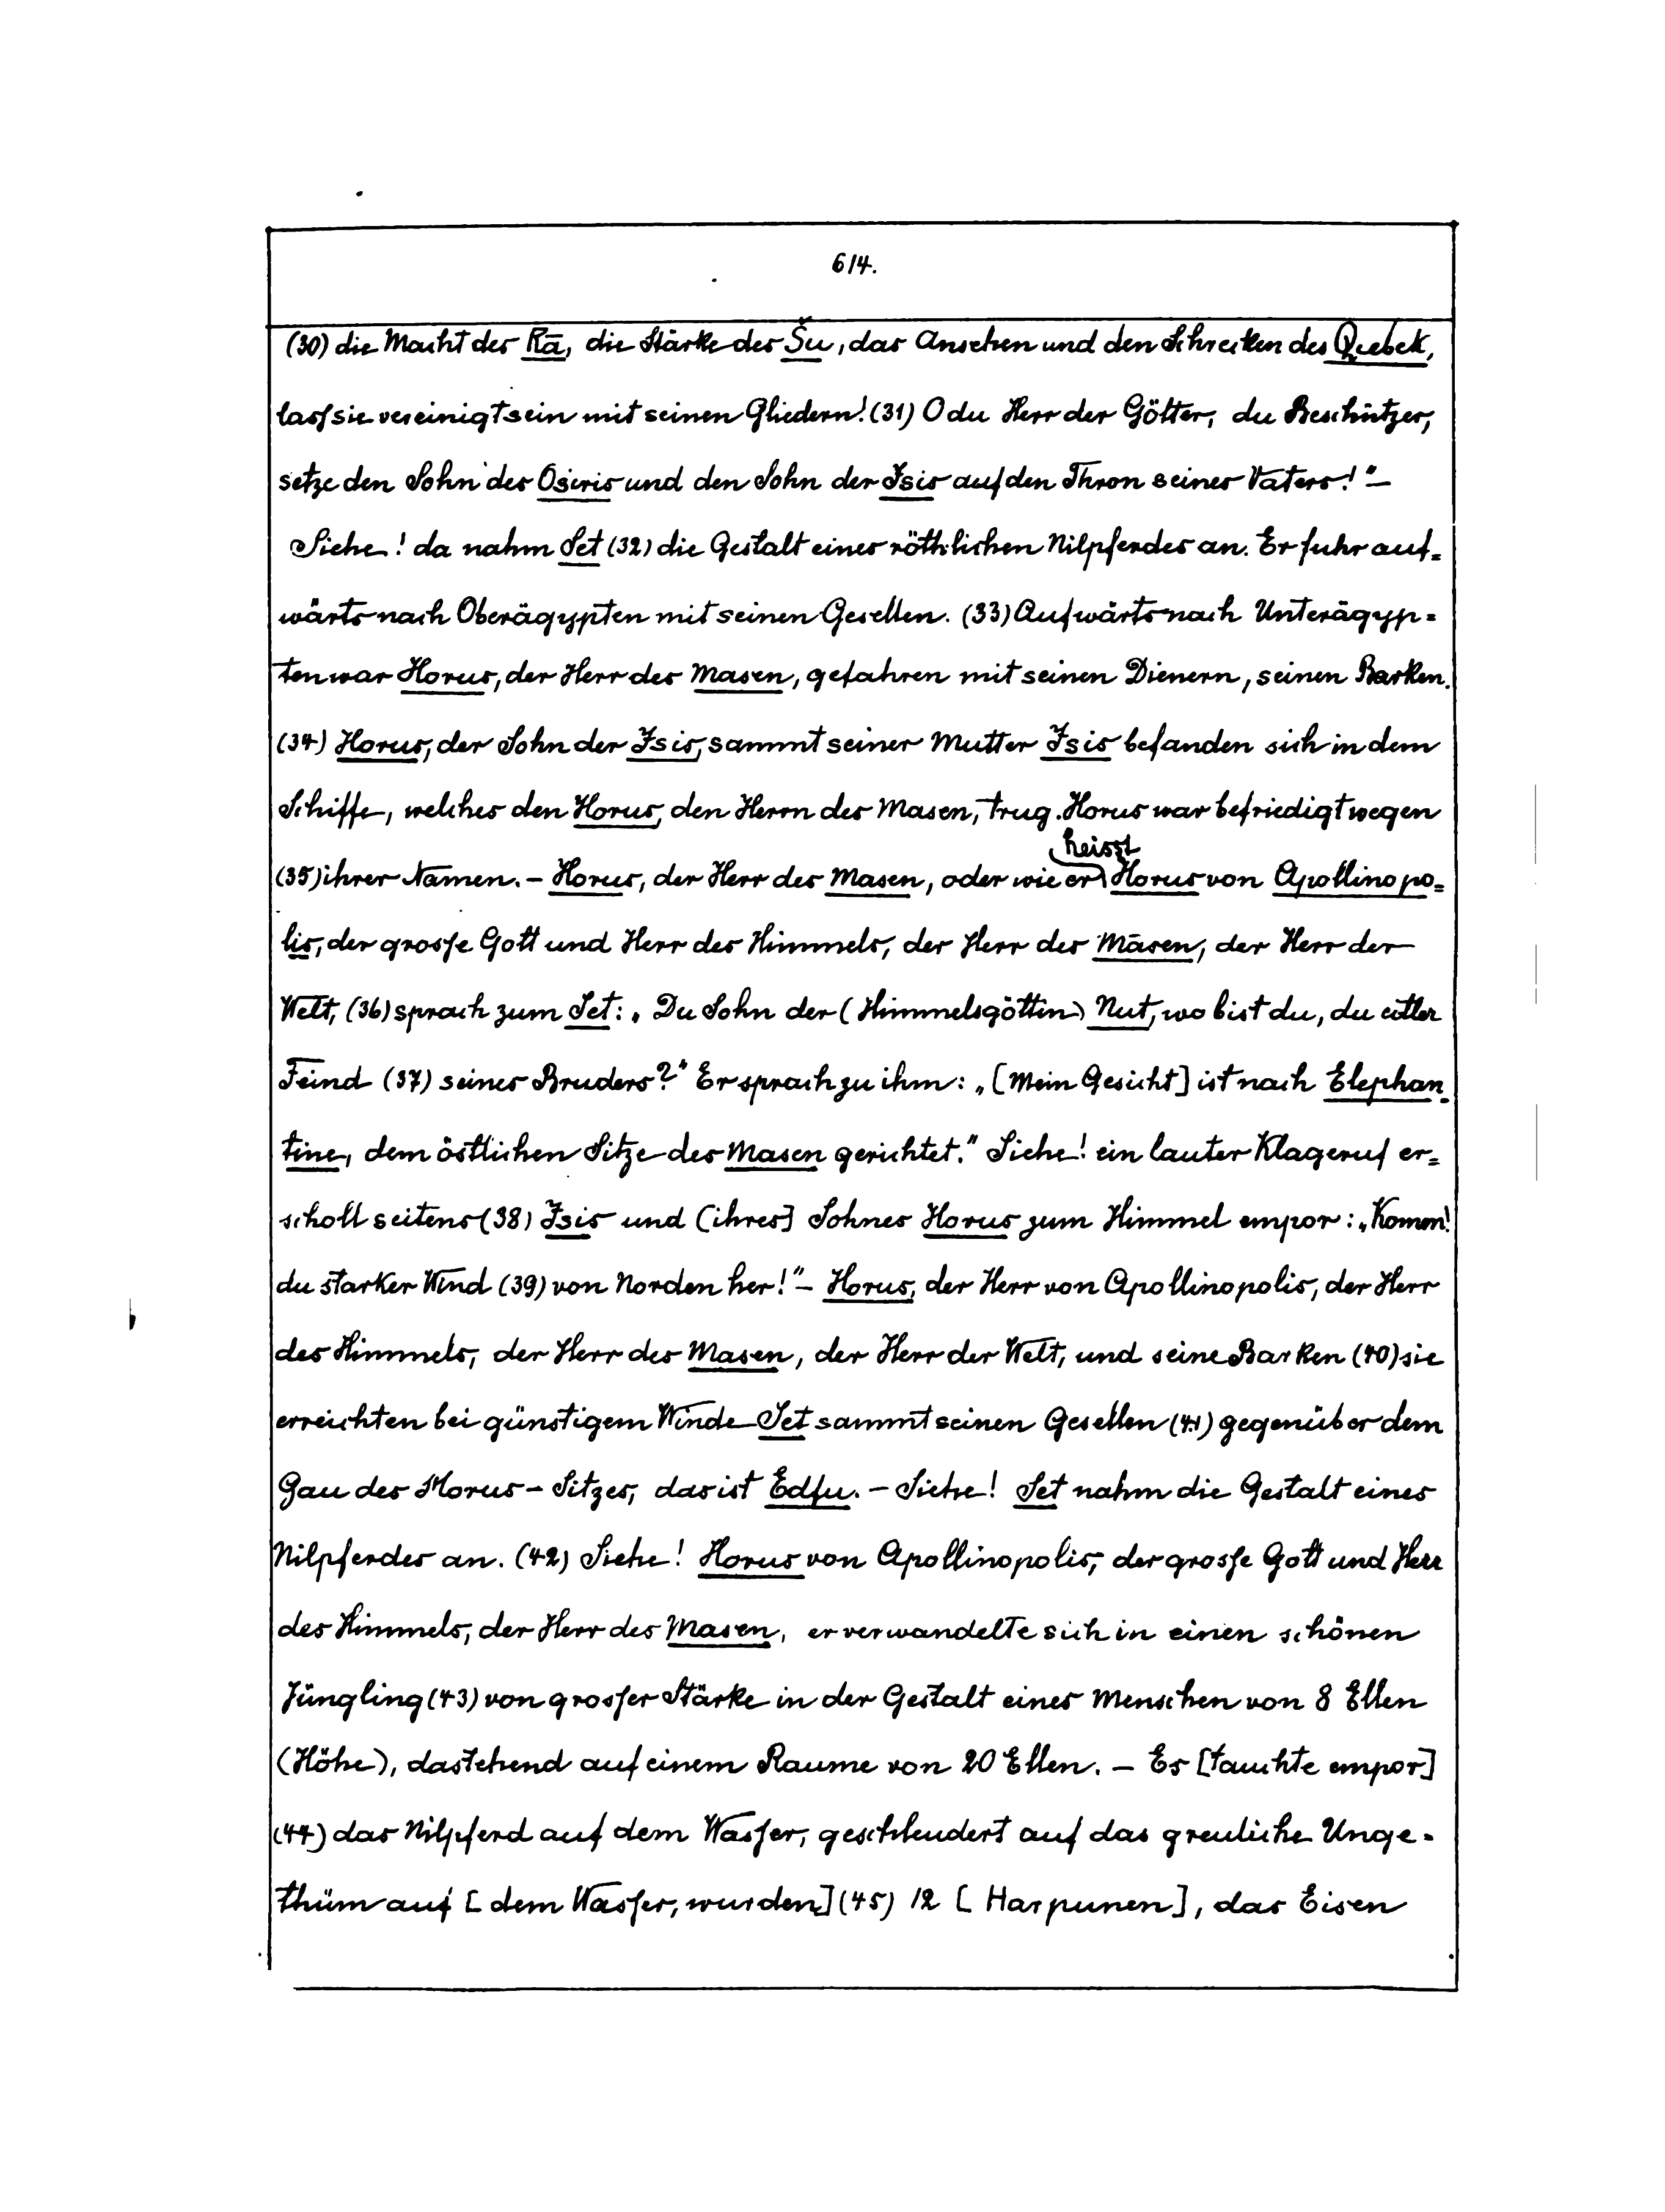 614.
(30) die Macht des Rā, die Stärke des Šu, das Ansehen und den Schrecken des Quebek,
lass sie vereinigt sein mit seinen Gliedern! (31) O du Herr der Götter, du Beschützer,
setze den Sohn des Osiris und den Sohn der Isis auf den Thron seines Vaters!" –
Siehe! da nahm Set (32) die Gestalt eines röthlichen Nilpferdes an. Er fuhr auf=
wärts nach Oberägypten mit seinen Gesellen. (33) Aufwärts nach Unterägyp=
ten war Horus, der Herr des Masen, gefahren mit seinen Dienern, seinen Barken.
(34) Horus, der Sohn der Isis, sammt seiner Mutter Isis befanden sich in dem
Schiffe, welches den Horus, den Herrn des Masen, trug. Horus war befriedigt wegen
(35) ihres Namen. – Horus, der Herr des Masen, oder wie er heisst Horus von Apollinopo=
lis, der grosse Gott und Herr des Himmels, der Herr des Māsen, der Herr der
Welt, (36) sprach zum Set: „Du Sohn der (Himmelsgöttin) Nut, wo bist du, du eitler
Feind (37) seines Bruders?" Er sprach zu ihm: „[Mein Gesicht] ist nach Elephan=
tine, dem östlichen Sitze des Masen gerichtet." Siehe! ein lauter Klageruf er=
scholl seitens (38) Isis und (ihres] Sohnes Horus zum Himmel empor: „Komm!
du starker Wind (39) von Norden her!" – Horus, der Herr von Apollinopolis, der Herr
des Himmels, der Herr des Masen, der Herr der Welt, und seine Barken (40) sie
erreichten bei günstigem Winde Set sammt seinen Gesellen (41) gegenüber dem
Gau des Horus – Sitzes, das ist Edfu. – Siehe! Set nahm die Gestalt eines
Nilpferdes an. (42) Siehe! Horus von Apollinopolis, der grosse Gott und Herr
des Himmels, der Herr des Masen, er verwandelte sich in einen schönen
Jüngling (43) von grosser Stärke in der Gestalt eines Menschen von 8 Ellen
(Höhe), dastehend auf einem Raume von 20 Ellen. – Es [tauchte empor]
(44) das Nilpferd auf dem Wasser, geschleudert auf das greuliche Unge=
thüm auf [dem Wasser, wurden] (45) 12 [Harpunen], das Eisen